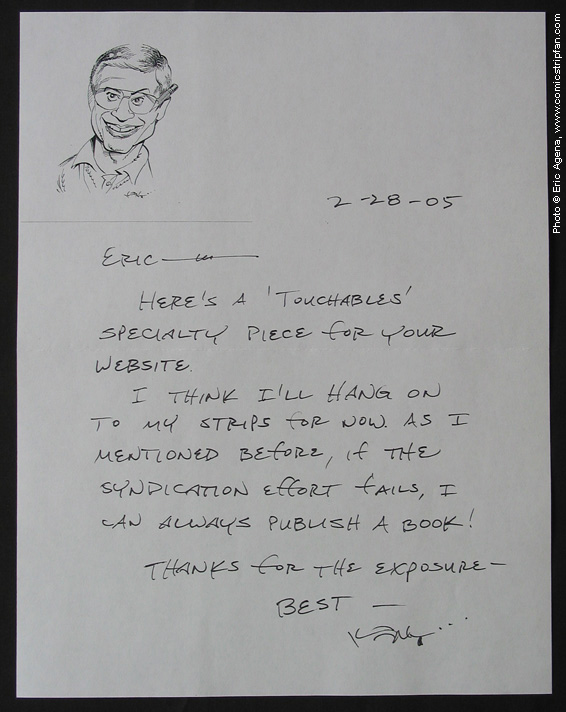 2-28-05
ERIC—
HERE'S A 'TOUCHABLES'
SPECIALTY PIECE FOR YOUR
WEBSITE.
I THINK I'LL HANG ON
TO MY STRIPS FOR NOW. AS I
MENTIONED BEFORE, IF THE
SYNDICATION EFFORT FAILS, I
CAN ALWAYS PUBLISH A BOOK!
THANKS FOR THE EXPOSURE—
BEST —
Photo © Eric Agena, www.comicstripfan.com